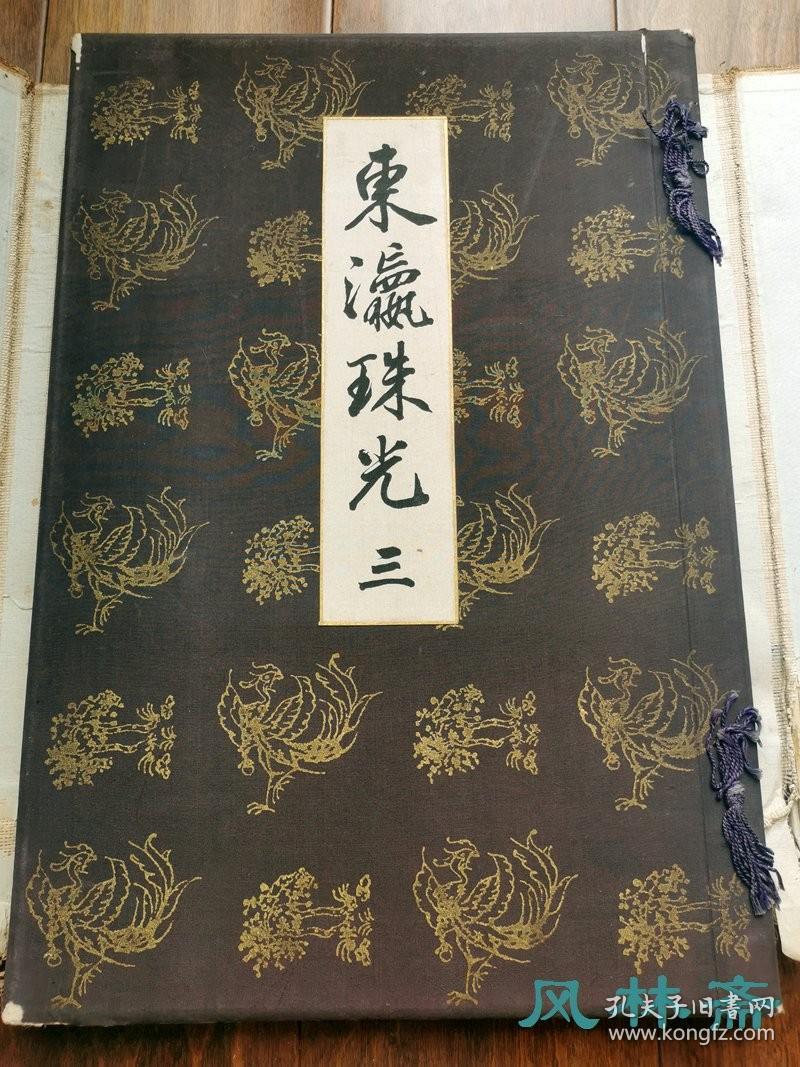 東瀛珠光
三
风林斋
孔夫子旧書网
www.kongfz.com